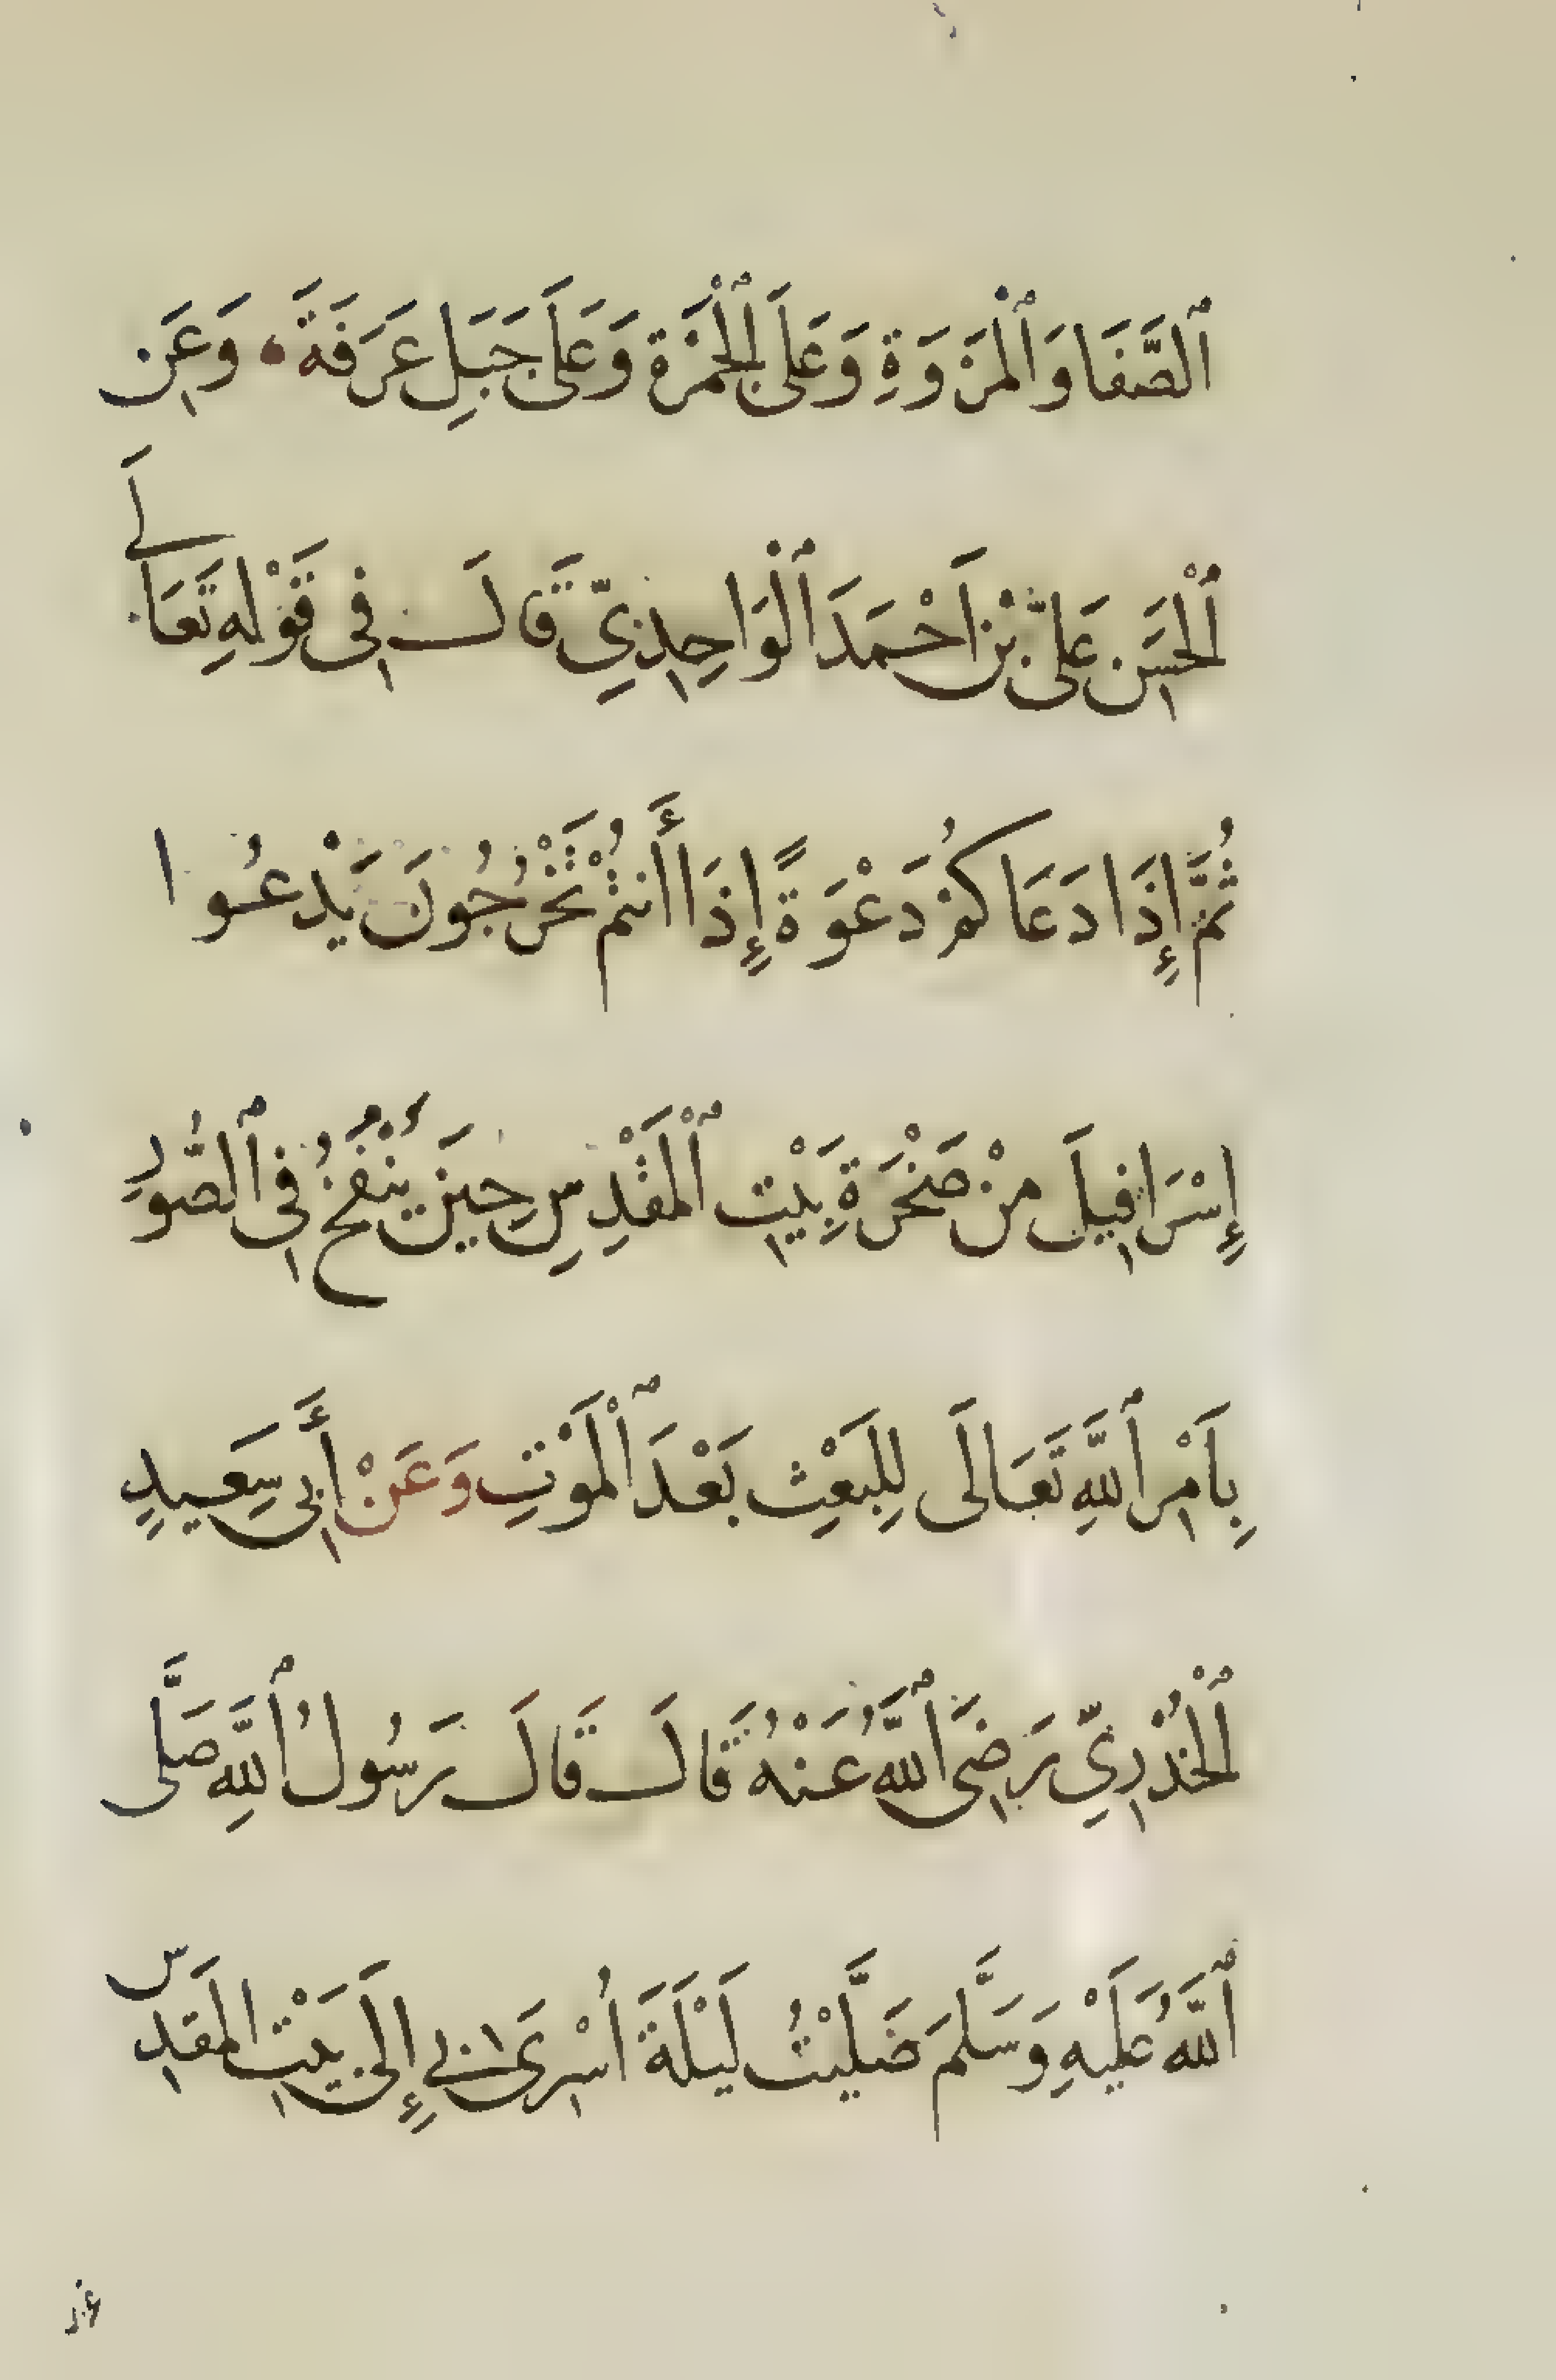 ٱلصَّفَا وَٱلْمَرْوَةِ وَعَلَى ٱلْجَمْرَة وَعَلَى جَبَلِ عَرَفَةَ وَعَنِ
ٱلْحَسَنِ عَلِيِّ بْنِ اَحْمَدَ ٱلْوَاحِدِيِّ قَالَ فِى قَوْلِهِ تَعَالَى
ثُمَّ إِذَا دَعَاكُمْ دَعْوَةً إِذَا أَنتُمْ تَخْرُجُونَ يَدْعُوا
إِسْرَافِيلَ مِنْ صَخْرَةِ بَيْتِ ٱلْمَقْدِسِ حِينَ يُنْفَخُ فِى ٱلصُّورِ
بِاَمْرِ ٱللهِ تَعَالَى لِلْبَعْثِ بَعْدَ ٱلْمَوْتِ وَعَنْ أَبِى سَعِيدٍ
ٱلْخُدْرِيِّ رَضِىَ ٱللَّهُ عَنْهُ قَالَ قَالَ رَسُولُ ٱللَّهِ صَلَّى
ٱللَّهُ عَلَيْهِ وَسَلَّمَ صَلَّيْتُ لَيْلَةَ اُسْرِىَ بِى إِلَى بَيْتِ المَقدِس